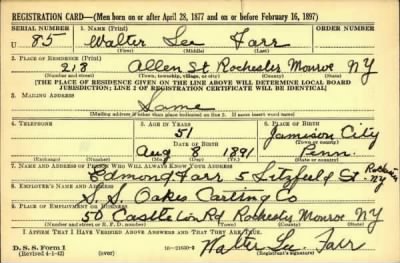 REGISTRATION CARD—(Men born on or after April 28, 1877 and on or before February 16, 1897)
SERIAL NUMBER 1. NAME (Print)
U 85 Walter Lee Farr
(First) (Middle) (Last)
2. PLACE OF RESIDENCE (Print)
218 Allen St Rochester Monroe NY
(Number and street) (Town, township, village, or city) (County) (State)
[THE PLACE OF RESIDENCE GIVEN ON THE LINE ABOVE WILL DETERMINE LOCAL BOARD
JURISDICTION; LINE 2 OF REGISTRATION CERTIFICATE WILL BE IDENTICAL]
3. MAILING ADDRESS
Same
[Mailing address if other than place indicated on line 2. If same insert word same]
4. TELEPHONE 5. AGE IN YEARS 6. PLACE OF BIRTH
51 Jamison City
DATE OF BIRTH (Town or county)
Aug 8 1891 Penn.
(Exchange) (Number) (Mo.) (Day) (Yr.) (State or country)
7. NAME AND ADDRESS OF PERSON WHO WILL ALWAYS KNOW YOUR ADDRESS
Edmond Farr 5 St Rochester NY
8. EMPLOYER'S NAME AND ADDRESS
S. S. Oakes Carting Co
9. PLACE OF EMPLOYMENT OR BUSINESS
50 Rd Rochester Monroe NY
(Number and street or R. F. D. number) (Town) (County) (State)
I AFFIRM THAT I HAVE VERIFIED ABOVE ANSWERS AND THAT THEY ARE TRUE.
D. S. S. Form 1
(Revised 4-1-42) (over) 16—21630-2 Walter Lee Farr